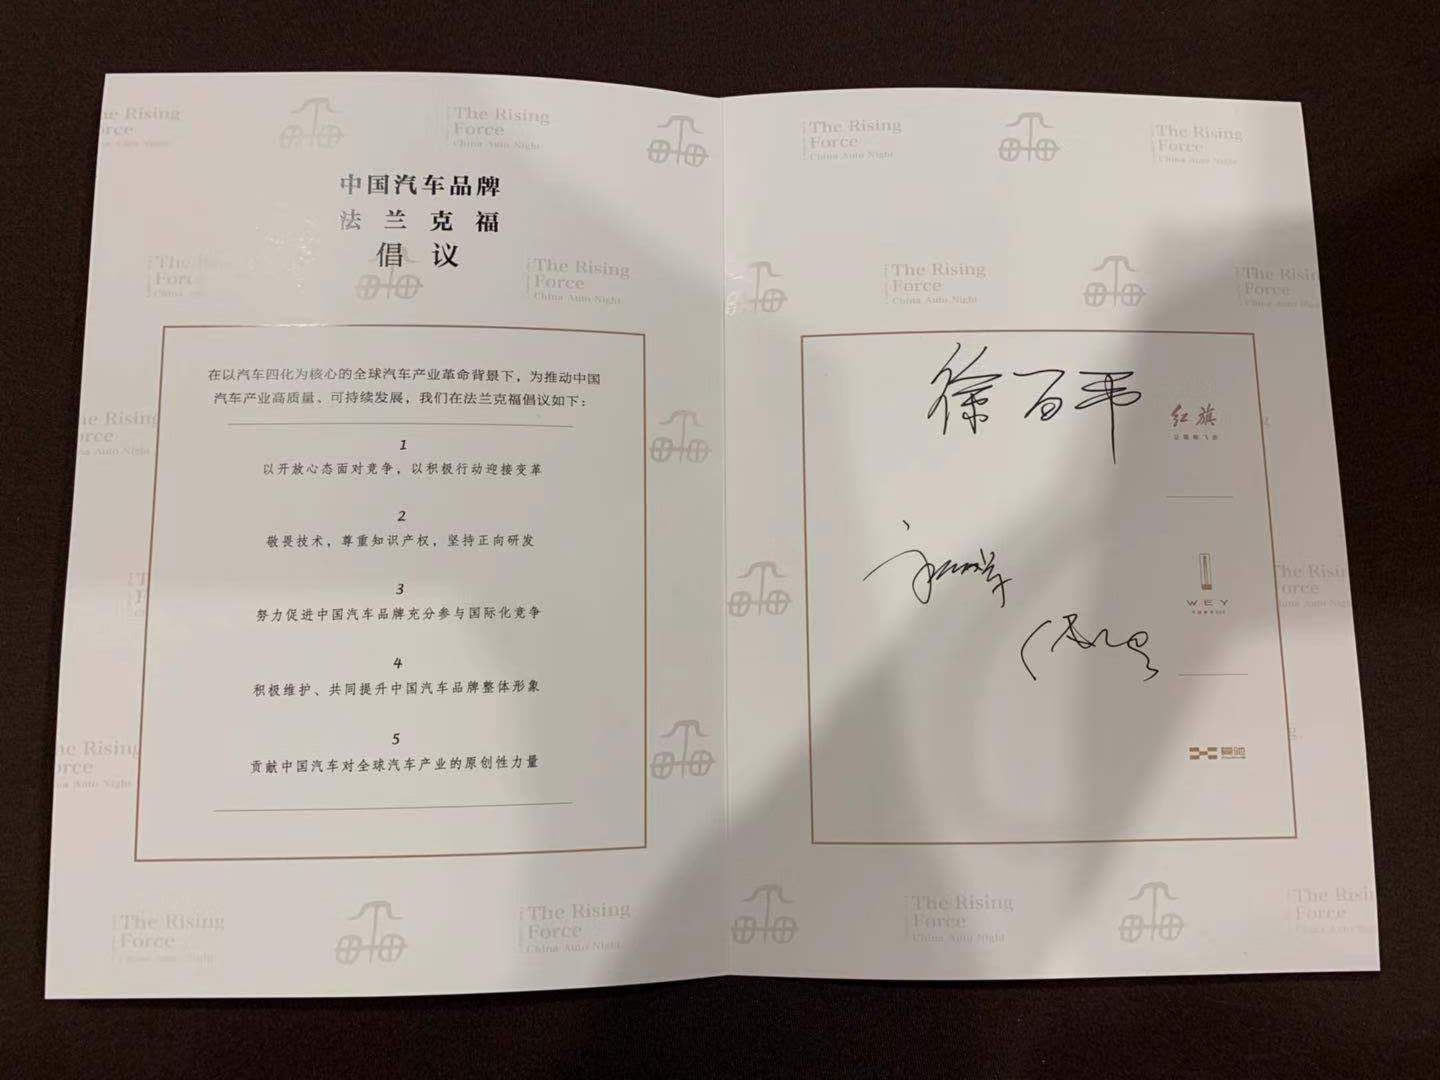 中国汽车品牌
法兰克福
倡议
在以汽车四化为核心的全球汽车产业革命背景下，为推动中国
汽车产业高质量、可持续发展，我们在法兰克福倡议如下：
1
以开放心态面对竞争，以积极行动迎接变革
2
敬畏技术，尊重知识产权，坚持正向研发
3
努力促进中国汽车品牌充分参与国际化竞争
4
积极维护、共同提升中国汽车品牌整体形象
5
贡献中国汽车对全球汽车产业的原创性力量
徐百平
红旗
WEY
The Rising
Force
China Auto Night